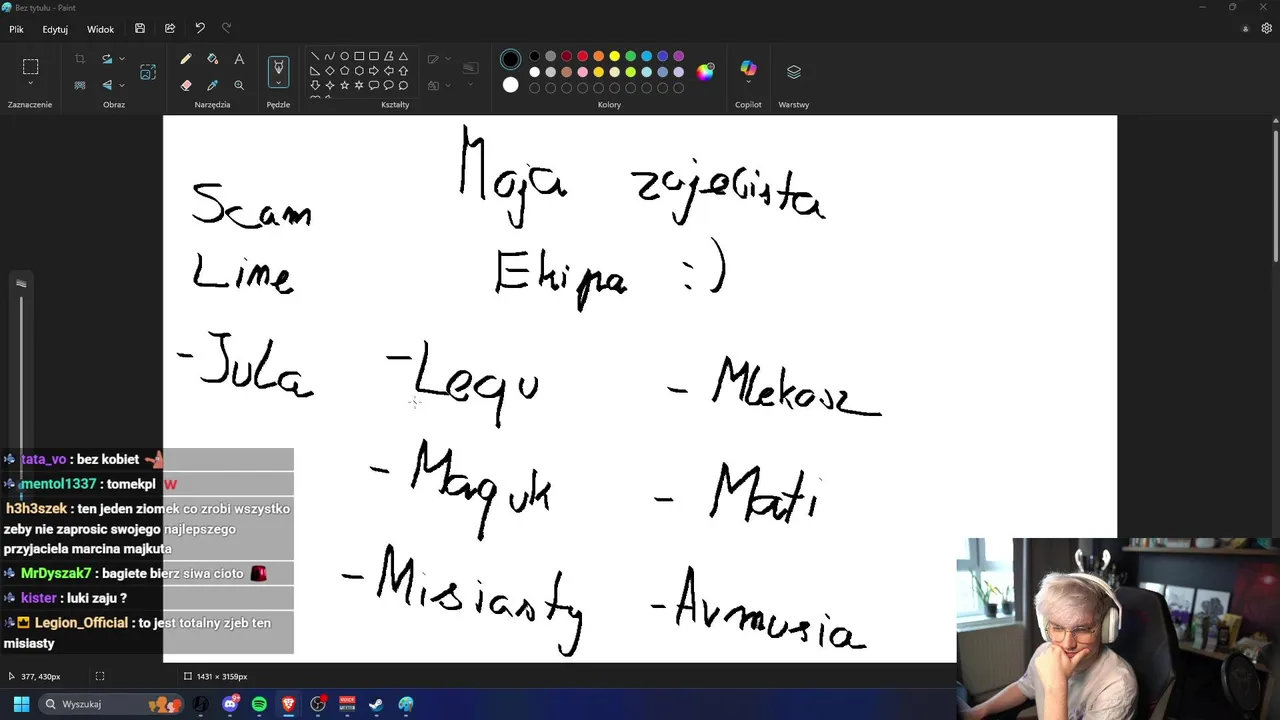 Bez tytułu - Paint
Plik Edytuj Widok
Zaznaczenie Obraz Narzędzia Pędzle Kształty Kolory Copilot Warstwy
Moja zajebista
Ekipa :)
Scam
Lime
- Jula - Lequ - Mlekosz
- Maquk - Mati
- Misiasty - Avmusia
tata_vo : bez kobiet
mentol1337 : tomekpl W
h3h3szek : ten jeden ziomek co zrobi wszystko
zeby nie zaprosic swojego najlepszego
przyjaciela marcina majkuta
MrDyszak7 : bagiete bierz siwa cioto
kister : luki zaju ?
Legion_Official : to jest totalny zjeb ten
misiasty
377, 430px 1431 × 3159px
Wyszukaj